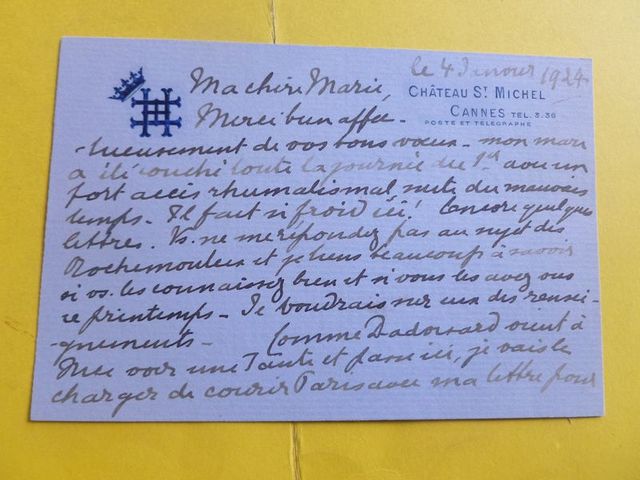 le 4 Janvier 1924
CHÂTEAU ST MICHEL
CANNES TEL. 3.36
POSTE ET TÉLÉGRAPHE
Ma chère Marie,
Merci bien affec-
-tueusement de vos bons vœux - mon mari
a été couché toute la journée du 1er avec un
fort accès rhumatismal suite du mauvais
temps - Il fait si froid ici! Encore quelques
lettres. Vs. ne me répondez pas au sujet des
et je tiens beaucoup à savoir
si vs. les connaissez bien et si vous les avez vus
ce printemps - Je voudrais sur eux des rensei-
-gnements - Comme vient à
Nice voir une Tante et passe ici, je vais le
charger de courir Paris avec ma lettre pour